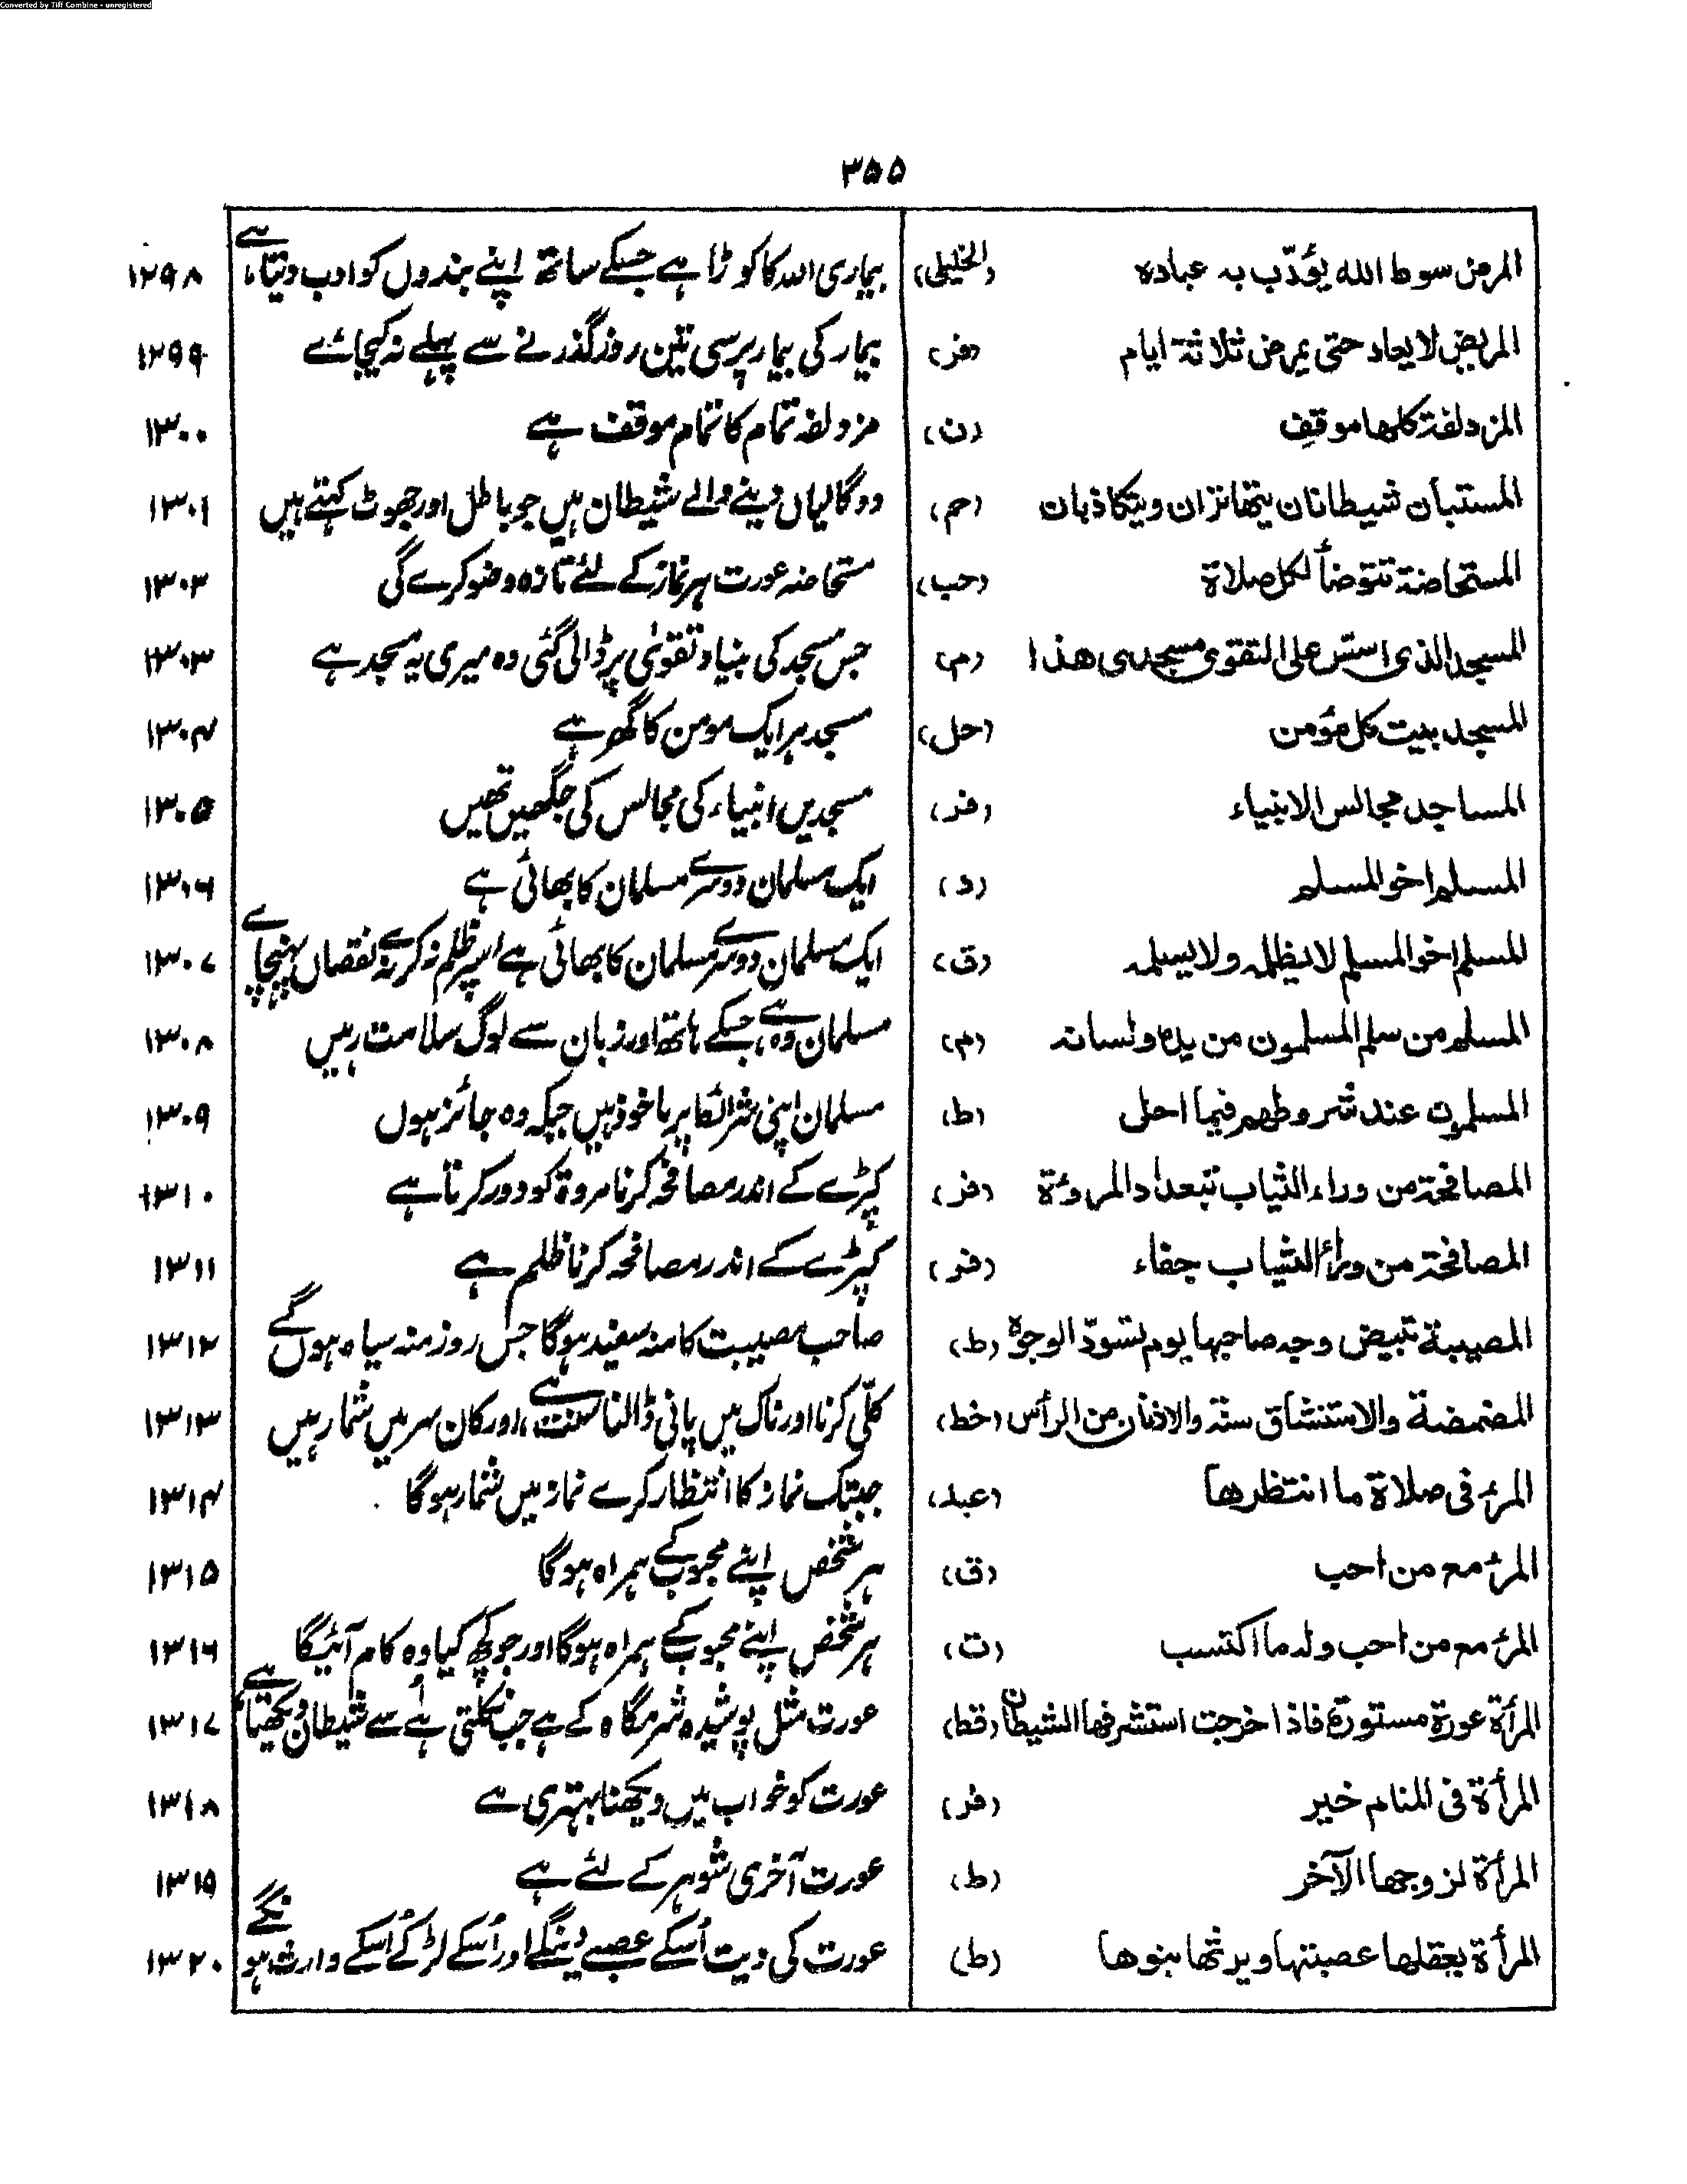 Converted by Tiff Combine - unregistered
۳۵۵
المرض سوط الله یؤدّب به عباده (الخلیلی) بیماری اللہ کا کوڑا ہے جسکے ساتھ اپنے بندوں کو ادب دیتا ہے ۱۲۹۸
المریض لا یعاد حتی یمرض ثلاثة ایام (فر) بیمار کی بیمار پرسی تین روز گذرنے سے پہلے نہ کیجائے ۱۲۹۹
المزدلفة کلها موقف (ن) مزدلفہ تمام کا تمام موقف ہے ۱۳۰۰
المستبأن شیطانان یتهاتران ویتکاذبان (حم) دو گالیاں دینے والے شیطان ہیں جو باطل اور جھوٹ کہتے ہیں ۱۳۰۱
المستحاضة تتوضأ لکل صلاة (حب) مستحاضہ عورت ہر نماز کے لئے تازہ وضو کرے گی ۱۳۰۲
المسجد الذی اسّس علی التقوی مسجدی هذا (م) جس مسجد کی بنیاد تقویٰ پر ڈالی گئی وہ میری یہ مسجد ہے ۱۳۰۳
المسجد بیت کل مؤمن (حل) مسجد ہر ایک مومن کا گھر ہے ۱۳۰۴
المساجد مجالس الانبیاء (فر) مسجدیں انبیاء کی مجالس کی جگھیں تھیں ۱۳۰۵
المسلم اخو المسلم (د) ایک مسلمان دوسرے مسلمان کا بھائی ہے ۱۳۰۶
المسلم اخو المسلم لا یظلمه ولا یسلمه (ق) ایک مسلمان دوسرے مسلمان کا بھائی ہے اسپر ظلم نہ کرے نہ نقصان پہنچائے ۱۳۰۷
المسلم من سلم المسلمون من یده ولسانه (م) مسلمان وہ ہے جسکے ہاتھ اور زبان سے لوگ سلامت رہیں ۱۳۰۸
المسلمون عند شروطهم فیما احل (ط) مسلمان اپنی شرائط پر ماخوذ ہیں جبکہ وہ جائز ہوں ۱۳۰۹
المصافحة من وراء الثیاب تبعد المروءة (فر) کپڑے کے اندر مصافحہ کرنا مروۃ کو دور کرتا ہے ۱۳۱۰
المصافحة من وراء الثیاب جفاء (فر) کپڑے کے اندر مصافحہ کرنا ظلم ہے ۱۳۱۱
المصیبة تبیض وجه صاحبها یوم تسودّ الوجوه (ط) صاحب مصیبت کا منہ سفید ہوگا جس روز منہ سیاہ ہوں گے ۱۳۱۲
المضمضة والاستنشاق سنة والاذنان من الرأس (خط) کلّی کرنا اور ناک میں پانی ڈالنا سنت ہے، اور کان سر میں شمار ہیں ۱۳۱۳
المرء فی صلاة ما انتظرها (عبد) جبتک نماز کا انتظار کرے نماز میں شمار ہوگا ۱۳۱۴
المرء مع من احب (ق) ہر شخص اپنے محبوب کے ہمراہ ہوگا ۱۳۱۵
المرء مع من احب وله ما اکتسب (ت) ہر شخص اپنے محبوب کے ہمراہ ہوگا اور جو کچھ کیا وہ کام آئیگا ۱۳۱۶
المرأة عورة مستورة فاذا خرجت استشرفها الشیطان (قط) عورت مثل پوشیدہ شرمگاہ کے ہے جب نکلتی ہے اُسے شیطان دیکھتا ہے ۱۳۱۷
المرأة فی المنام خیر (فر) عورت کو خواب میں دیکھنا بہتری ہے ۱۳۱۸
المرأة لزوجها الآخر (ط) عورت آخری شوہر کے لئے ہے ۱۳۱۹
المرأة یعقلها عصبتها ویرثها بنوها (ط) عورت کی دیت اُسکے عصبے دینگے اور اُسکے لڑکے اُسکے وارث ہونگے ۱۳۲۰